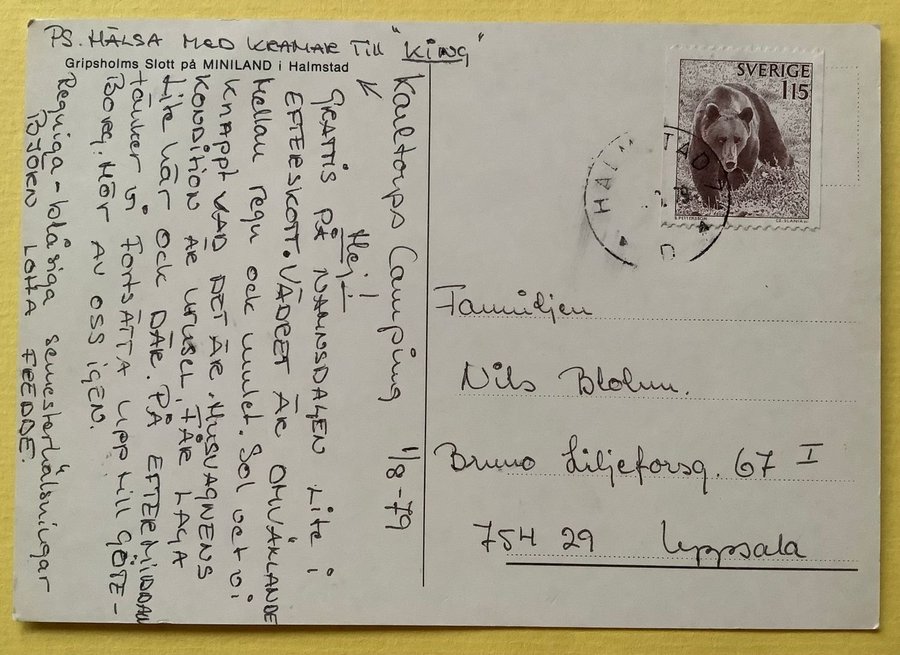 PS. HÄLSA MED KRAMAR Till "KING"
Gripsholms Slott på MINILAND i Halmstad
Karltorps Camping 1/8-79
Hej!
GRATTIS PÅ NAMNSDAGEN LITE I
EFTERSKOTT. VÄDRET ÄR OMVÄXLANDE
Mellan regn och mulet. Sol vet vi
KNAPPT VAD DET ÄR. HUSVAGNENS
KONDITION ÄR UTMSEL. FÅR LAGA
Lite här OCH DÄR. PÅ EFTERMIDDAN
tänker vi FORTSÄTTA UPP till GÖTE-
BORG. HÖR AV OSS IGEN.
Regniga-blåsiga semesterhälsningar
BJÖRN LOTTA FREDDE.
SVERIGE
115
S. PETTERSSON
CZ. SLANIA SC.
HALMSTAD
79
Familjen
Nils Blohm.
Bruno Liljeforsg. 67 I
754 29 Uppsala